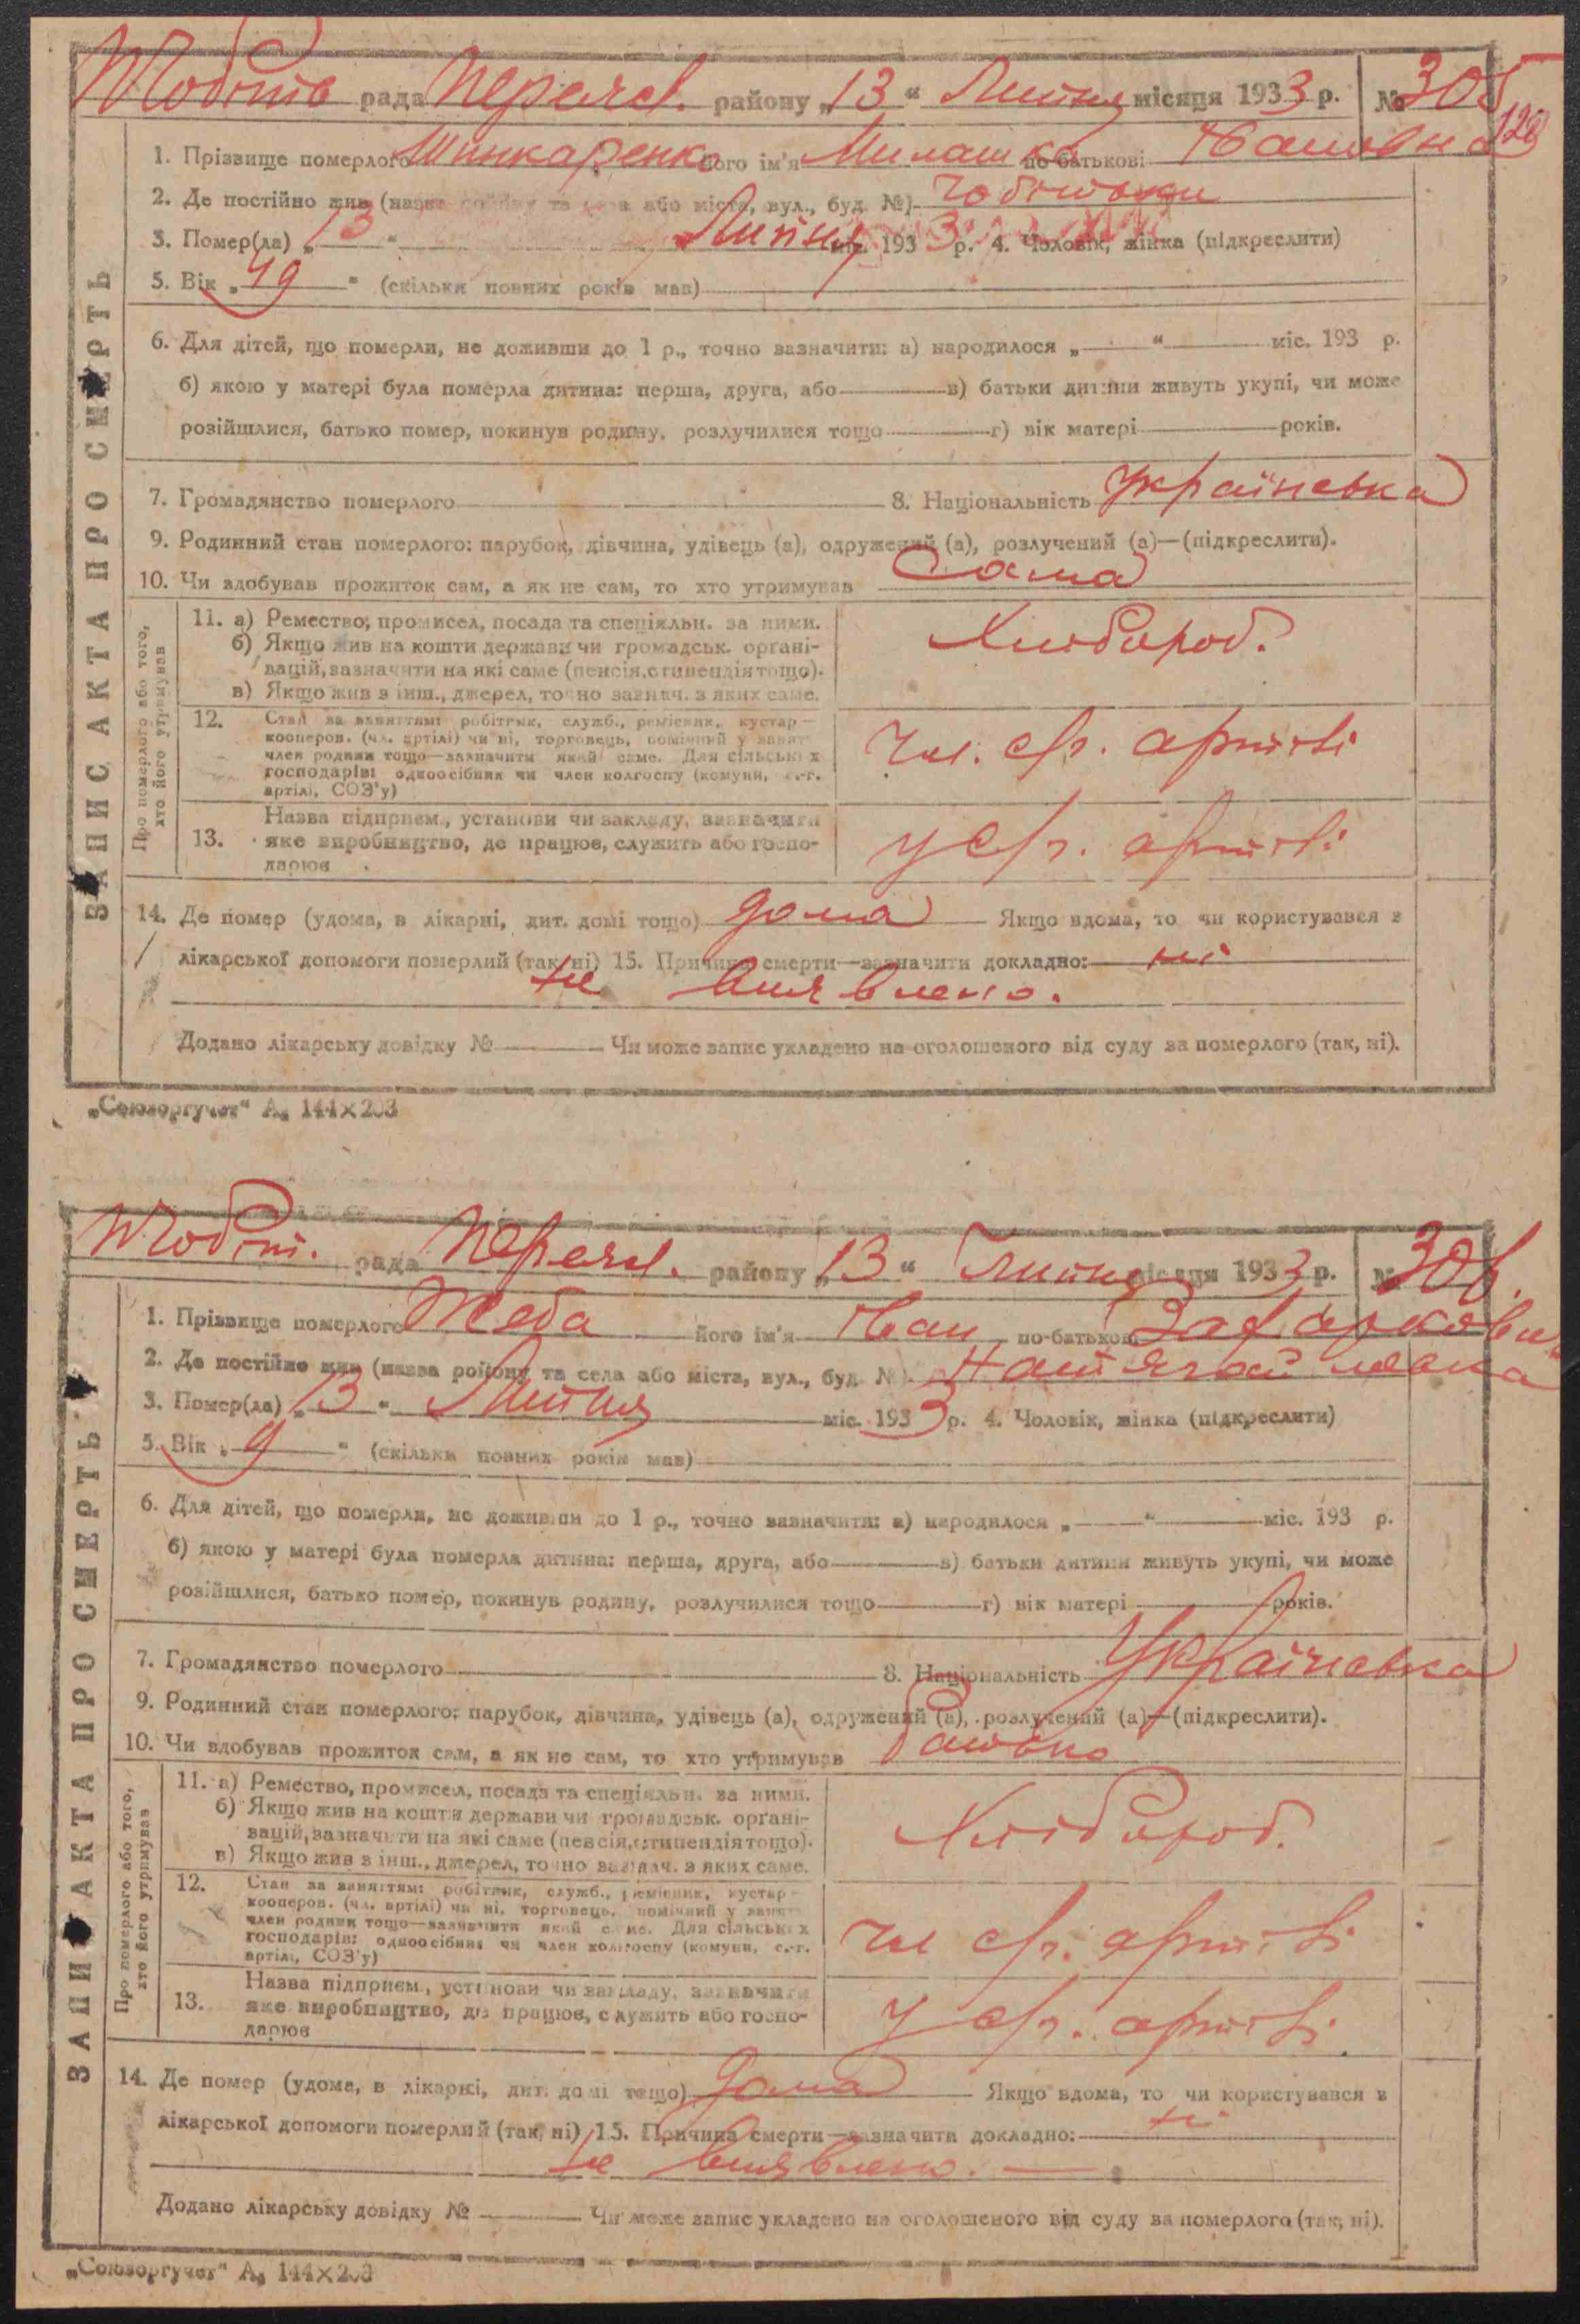 рада Перясл. району „13“ Липня місяця 1933 р. № 305
129
1. Прізвище померлого Шинкаренко його ім'я Милашка по-батькові
2. Де постійно жив (назва району та села або міста, вул., буд. №)
3. Помер(ла) „13“ Липня міс. 1933 р. 4. Чоловік, жінка (підкреслити)
5. Вік „49“ (скільки повних років мав)
6. Для дітей, що померли, не доживши до 1 р., точно зазначити: а) народилося „ “ міс. 193 р.
б) якою у матері була померла дитина: перша, друга, або в) батьки дитини живуть укупі, чи може
розійшлися, батько помер, покинув родину, розлучилися тощо г) вік матері років.
7. Громадянство померлого 8. Національність Українська
9. Родинний стан померлого: парубок, дівчина, удівець (а), одружений (а), розлучений (а)—(підкреслити).
10. Чи здобував прожиток сам, а як не сам, то хто утримував Сама
ЗАПИС АКТА ПРО СМЕРТЬ
Про померлого або того,
хто його утримував
11. а) Ремество, промисел, посада та спеціяльн. за ними.
б) Якщо жив на кошти держави чи громадськ. орґані-
зацій, зазначити на які саме (пенсія, стипендія тощо).
в) Якщо жив з інш., джерел, точно зазнач. з яких саме.
Хлібороб.
12. Стан за заняттям: робітник, служб., ремісник, кустар—
кооперов. (чл. артілі) чи ні, торговець, помічний у занят.
член родини тощо—зазначити який саме. Для сільських
господарів: одноосібник чи член колгоспу (комуни, с.-г.
артілі, СОЗ'у)
Чл. с/г. артілі
13. Назва підприєм., установи чи закладу, визначити
яке виробництво, де працює, служить або госпо-
дарює
у с/г. артілі
14. Де помер (удома, в лікарні, дит. домі тощо) дома Якщо вдома, то чи користувався з
лікарської допомоги померлий (так, ні) 15. Причина смерти—зазначити докладно: ні
не виявлено.
Додано лікарську довідку № Чи може запис укладено на оголошеного від суду за померлого (так, ні).
„Союзоргучет“ А₄ 144×203
рада Перясл. району „13“ Липня місяця 1933 р. № 306.
1. Прізвище померлого Жеба його ім'я Іван по-батькові
2. Де постійно жив (назва району та села або міста, вул., буд. №)
3. Помер(ла) „13“ Липня міс. 1933 р. 4. Чоловік, жінка (підкреслити)
5. Вік „9“ (скільки повних років мав)
6. Для дітей, що померли, не доживши до 1 р., точно зазначити: а) народилося „ “ міс. 193 р.
б) якою у матері була померла дитина: перша, друга, або в) батьки дитини живуть укупі, чи може
розійшлися, батько помер, покинув родину, розлучилися тощо г) вік матері років.
7. Громадянство померлого 8. Національність Українська
9. Родинний стан померлого: парубок, дівчина, удівець (а), одружений (а), розлучений (а)—(підкреслити).
10. Чи здобував прожиток сам, а як не сам, то хто утримував Батько
ЗАПИС АКТА ПРО СМЕРТЬ
Про померлого або того,
хто його утримував
11. а) Ремество, промисел, посада та спеціяльн. за ними.
б) Якщо жив на кошти держави чи громадськ. орґані-
зацій, зазначити на які саме (пенсія, стипендія тощо).
в) Якщо жив з інш., джерел, точно зазнач. з яких саме.
Хлібороб.
12. Стан за заняттям: робітник, служб., ремісник, кустар—
кооперов. (чл. артілі) чи ні, торговець, помічний у занят.
член родини тощо—зазначити який саме. Для сільських
господарів: одноосібник чи член колгоспу (комуни, с.-г.
артілі, СОЗ'у)
чл с/г. артілі
13. Назва підприєм., установи чи закладу, зазначити
яке виробництво, де працює, служить або госпо-
дарює
у с/г. артілі
14. Де помер (удома, в лікарні, дит. домі тощо) дома Якщо вдома, то чи користувався з
лікарської допомоги померлий (так, ні) 15. Причина смерти—зазначити докладно: ні
не виявлено.
Додано лікарську довідку № Чи може запис укладено на оголошеного від суду за померлого (так, ні).
„Союзоргучет“ А₄ 144×203